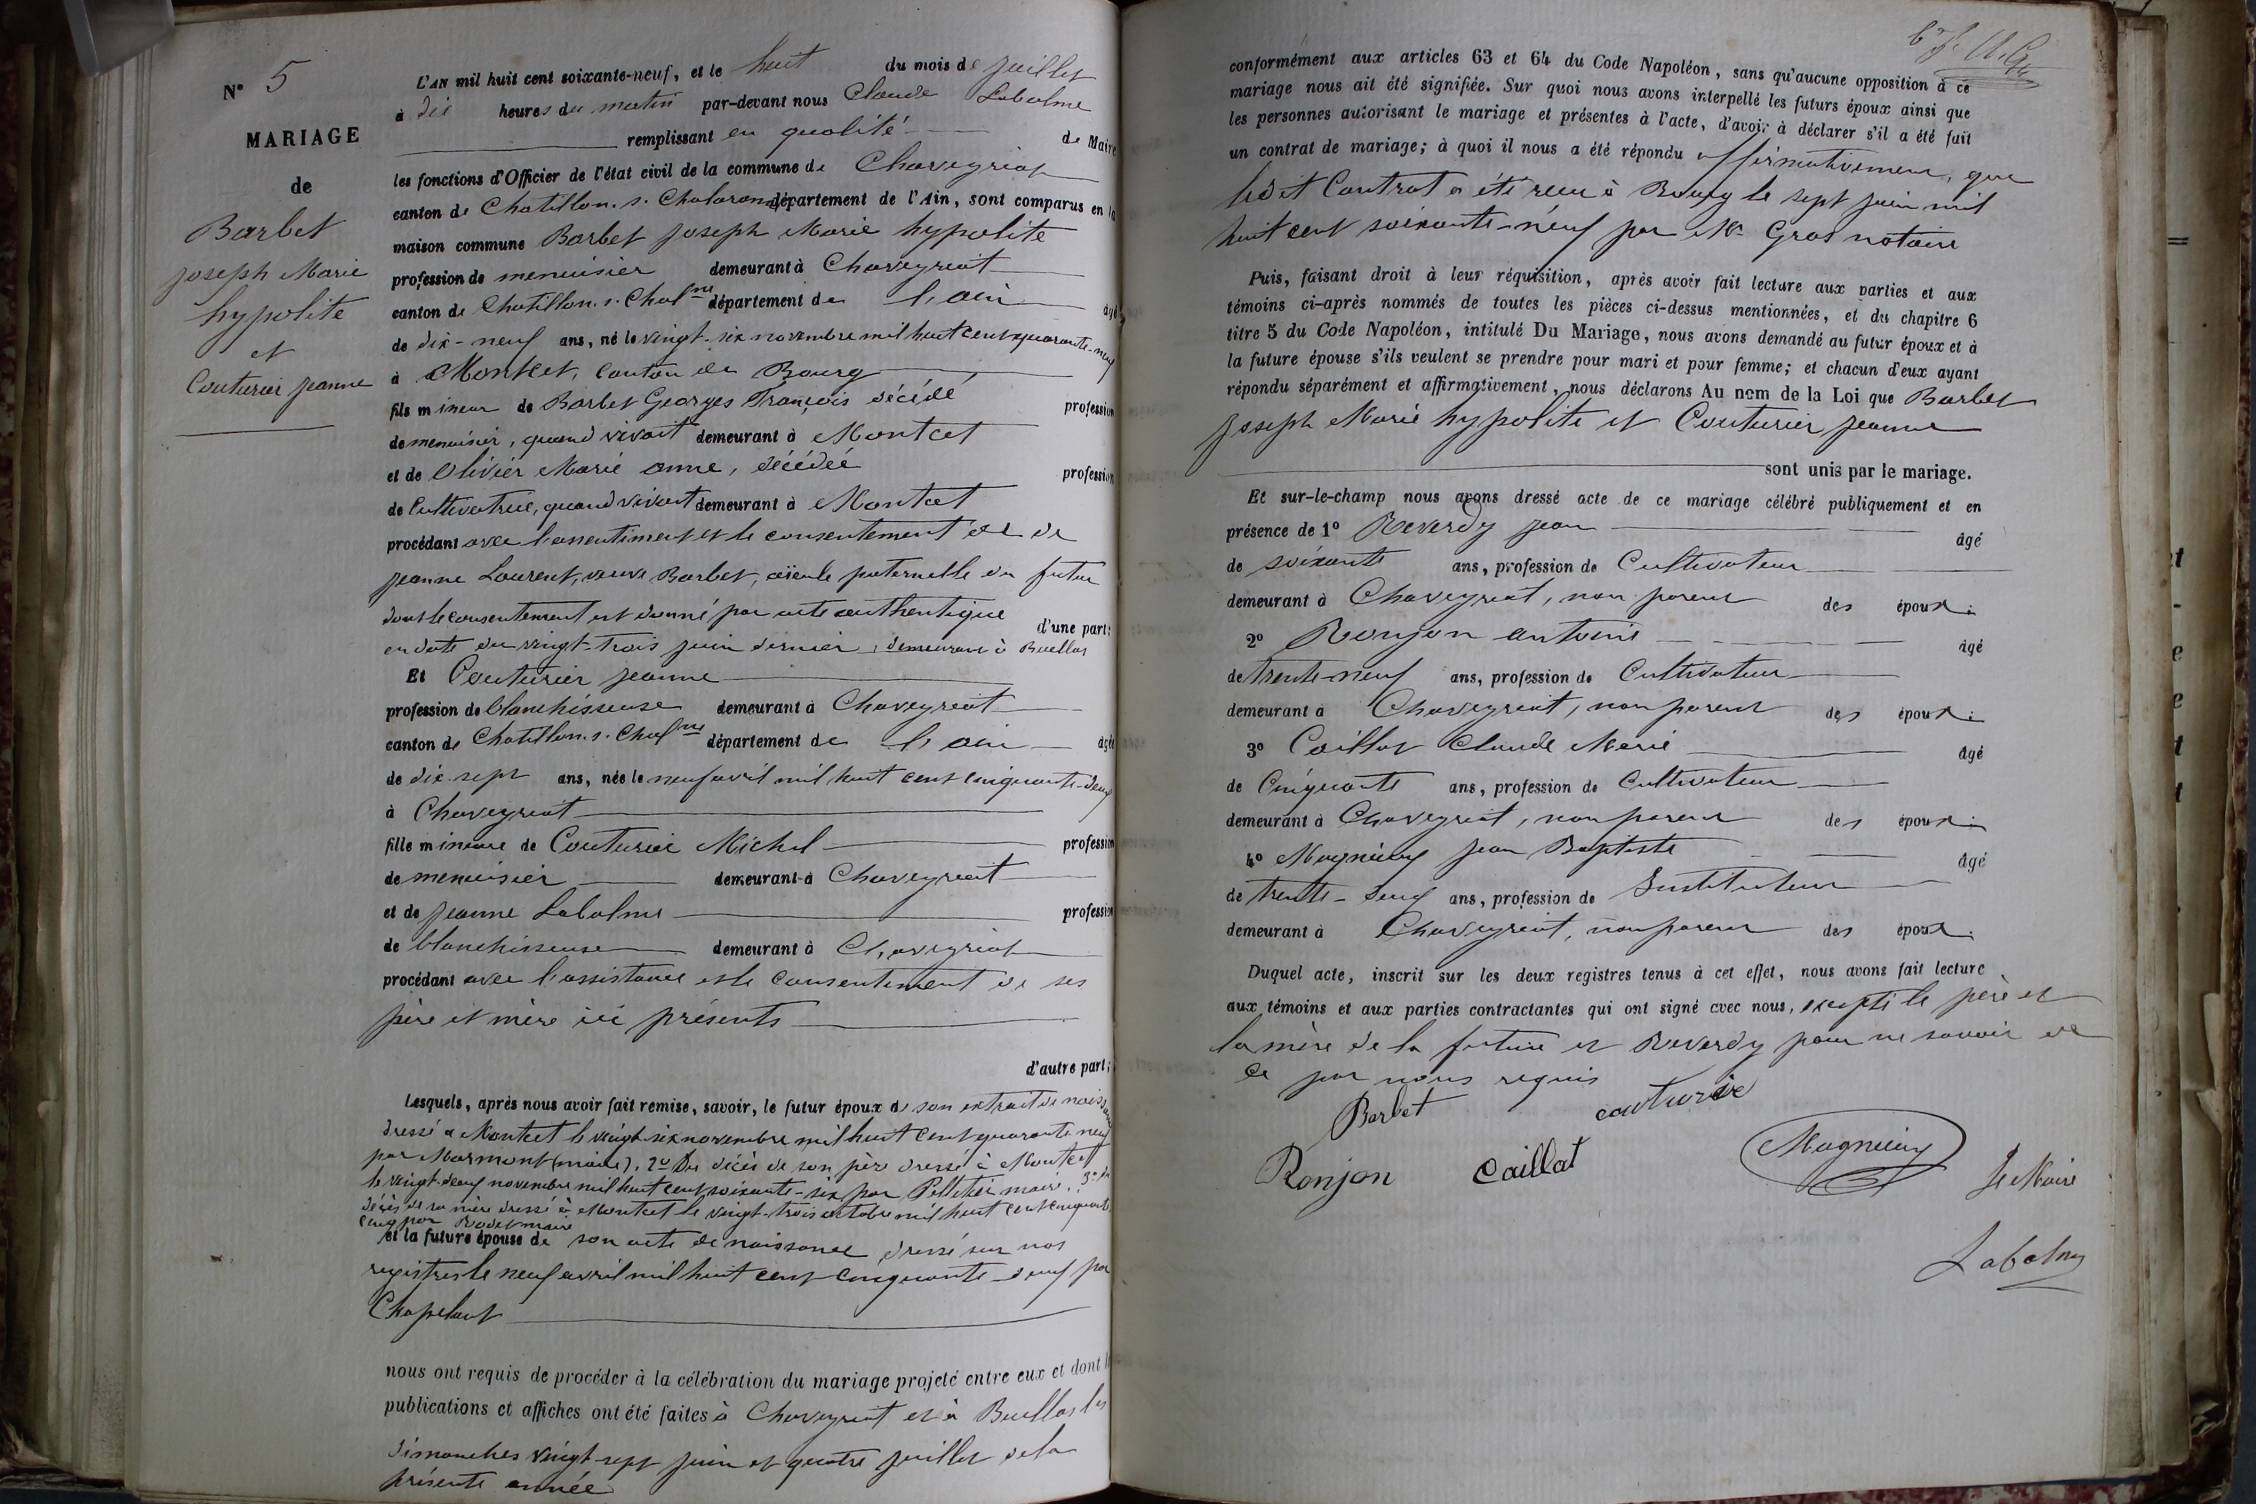 N° 5
MARIAGE
de
Barbet
Joseph Marie
hypolite
et
Couturier Jeanne
L'AN mil huit cent soixante-neuf, et le huit du mois de juillet
à dix heures du matin par-devant nous Claude Labalme
remplissant en qualité de Maire
les fonctions d'Officier de l'état civil de la commune de Chaveyriat
canton de Chatillon. s. Chalaronne département de l'Ain, sont comparus en la
maison commune Barbet Joseph Marie hypolite
profession de menuisier demeurant à Chaveyriat
canton de Chatillon. s. Chalne département de l'ain âgé
de dix-neuf ans, né le vingt-six novembre mil huit cent quarante-neuf
à Montcet, canton de Bourg
fils mineur de Barbet Georges François décédé profession
de menuisier, quand vivait demeurant à Montcet
et de Olivier Marie anne, décédée profession
de Cultivatrice, quand vivait demeurant à Montcet
procédant avec l'assentiment et le consentement de
Jeanne Laurent, veuve Barbet, aïeule paternelle du futur
dont le consentement est donné par acte authentique
d'une part;
en date du vingt-trois juin dernier, demeurant à Buellas
Et Couturier Jeanne
profession de blanchisseuse demeurant à Chaveyriat
canton de Chatillon. s. Chalne département de l'ain âgée
de dix-sept ans, née le neuf avril mil huit cent cinquante-deux
à Chaveyriat
fille mineure de Couturier Michel profession
de menuisier demeurant à Chaveyriat
et de Jeanne Labalme profession
de blanchisseuse demeurant à Chaveyriat
procédant avec l'assistance et le consentement de ses
père et mère ici présents
d'autre part;
Lesquels, après nous avoir fait remise, savoir, le futur époux de son extrait de naissance
dressé à Montcet le vingt-six novembre mil huit cent quarante neuf
par Marmont (maire). 2° Du décès de son père dressé à Montcet
le vingt-deux novembre mil huit cent soixante-six par Pelletier maire. 3° du
décès de sa mère dressé à Montcet le vingt-trois octobre mil huit cent cinquante
cinq par maire
et la future épouse de son acte de naissance dressé sur nos
registres le neuf avril mil huit cent cinquante-deux par
Chapeland
nous ont requis de procéder à la célébration du mariage projeté entre eux et dont
publications et affiches ont été faites à Chaveyriat et à Buellas les
dimanches vingt-sept juin et quatre juillet de la
présente année
conformément aux articles 63 et 64 du Code Napoléon, sans qu'aucune opposition à ce
mariage nous ait été signifiée. Sur quoi nous avons interpellé les futurs époux ainsi que
les personnes autorisant le mariage et présentes à l'acte, d'avoir à déclarer s'il a été fait
un contrat de mariage; à quoi il nous a été répondu affirmativement, que
ledit Contrat a été reçu à Bourg le sept juin mil
huit cent soixante-neuf par Me Gros notaire
Puis, faisant droit à leur réquisition, après avoir fait lecture aux parties et aux
témoins ci-après nommés de toutes les pièces ci-dessus mentionnées, et du chapitre 6
titre 5 du Code Napoléon, intitulé Du Mariage, nous avons demandé au futur époux et à
la future épouse s'ils veulent se prendre pour mari et pour femme; et chacun d'eux ayant
répondu séparément et affirmativement, nous déclarons Au nom de la Loi que Barbet
Joseph Marie hypolite et Couturier Jeanne
sont unis par le mariage.
Et sur-le-champ nous avons dressé acte de ce mariage célébré publiquement et en
présence de 1° Reverdy Jean âgé
de soixante ans, profession de Cultivateur
demeurant à Chaveyriat, non parent des époux;
2° Ronjon antoine âgé
de trente-neuf ans, profession de Cultivateur
demeurant à Chaveyriat, non parent des époux;
3° Caillat Claude Marie âgé
de Cinquante ans, profession de Cultivateur
demeurant à Chaveyriat, non parent des époux;
4° Magnieny Jean Baptiste âgé
de trente-deux ans, profession de Instituteur
demeurant à Chaveyriat, non parent des époux.
Duquel acte, inscrit sur les deux registres tenus à cet effet, nous avons fait lecture
aux témoins et aux parties contractantes qui ont signé avec nous, excepté le père et
la mère de la future et Reverdy pour ne savoir de
ce par nous requis
Barbet couturie
Ronjon Caillat Magnieny Le Maire
Labalme